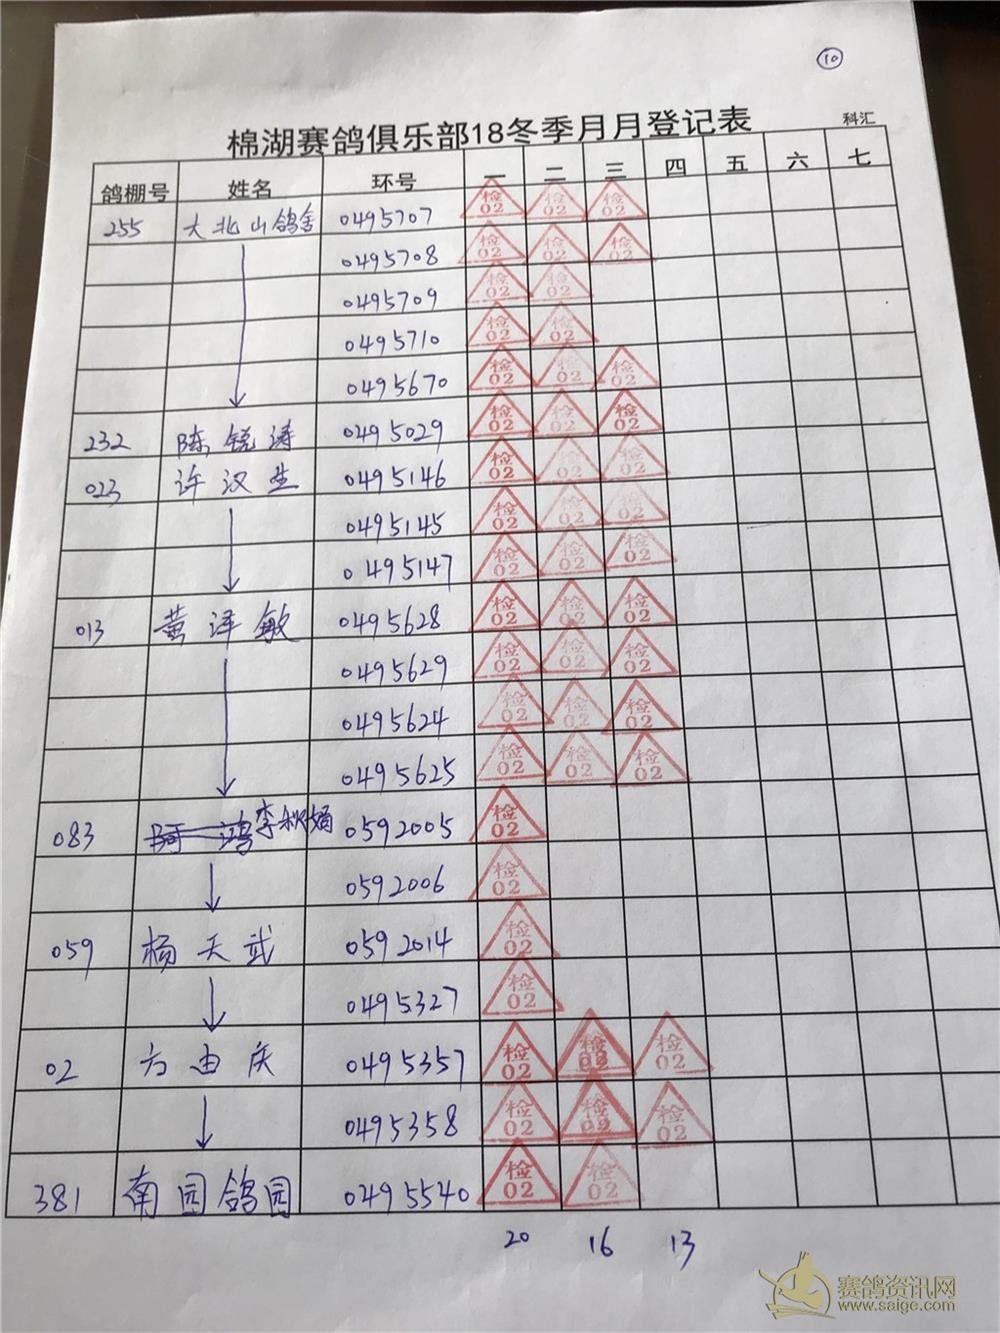 10
棉湖赛鸽俱乐部18冬季月月登记表
科汇
鸽棚号 姓名 环号 一 二 三 四 五 六 七
255 大北山鸽舍 0495707 检02 检02 检02
0495708 检02 检02 检02
0495709 检02 检02
0495710 检02 检02
0495670 检02 检02 检02
232 陈锐涛 0495029 检02 检02 检02
023 许汉生 0495146 检02 检02 检02
0495145 检02 检02 检02
0495147 检02 检02 检02
013 黄泽敏 0495628 检02 检02 检02
0495629 检02 检02 检02
0495624 检02 检02 检02
0495625 检02 检02 检02
083 李秋娟 0592005 检02
0592006 检02
059 杨天武 0592014 检02
0495327 检02
02 方由庆 0495357 检02 检02 检02
0495358 检02 检02 检02
381 南园鸽园 0495540 检02 检02
20 16 13
赛鸽资讯网
www.saige.com